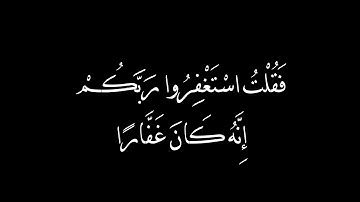 فَقُلْتُ اسْتَغْفِرُوا رَبَّكُمْ
إِنَّهُ كَانَ غَفَّارًا